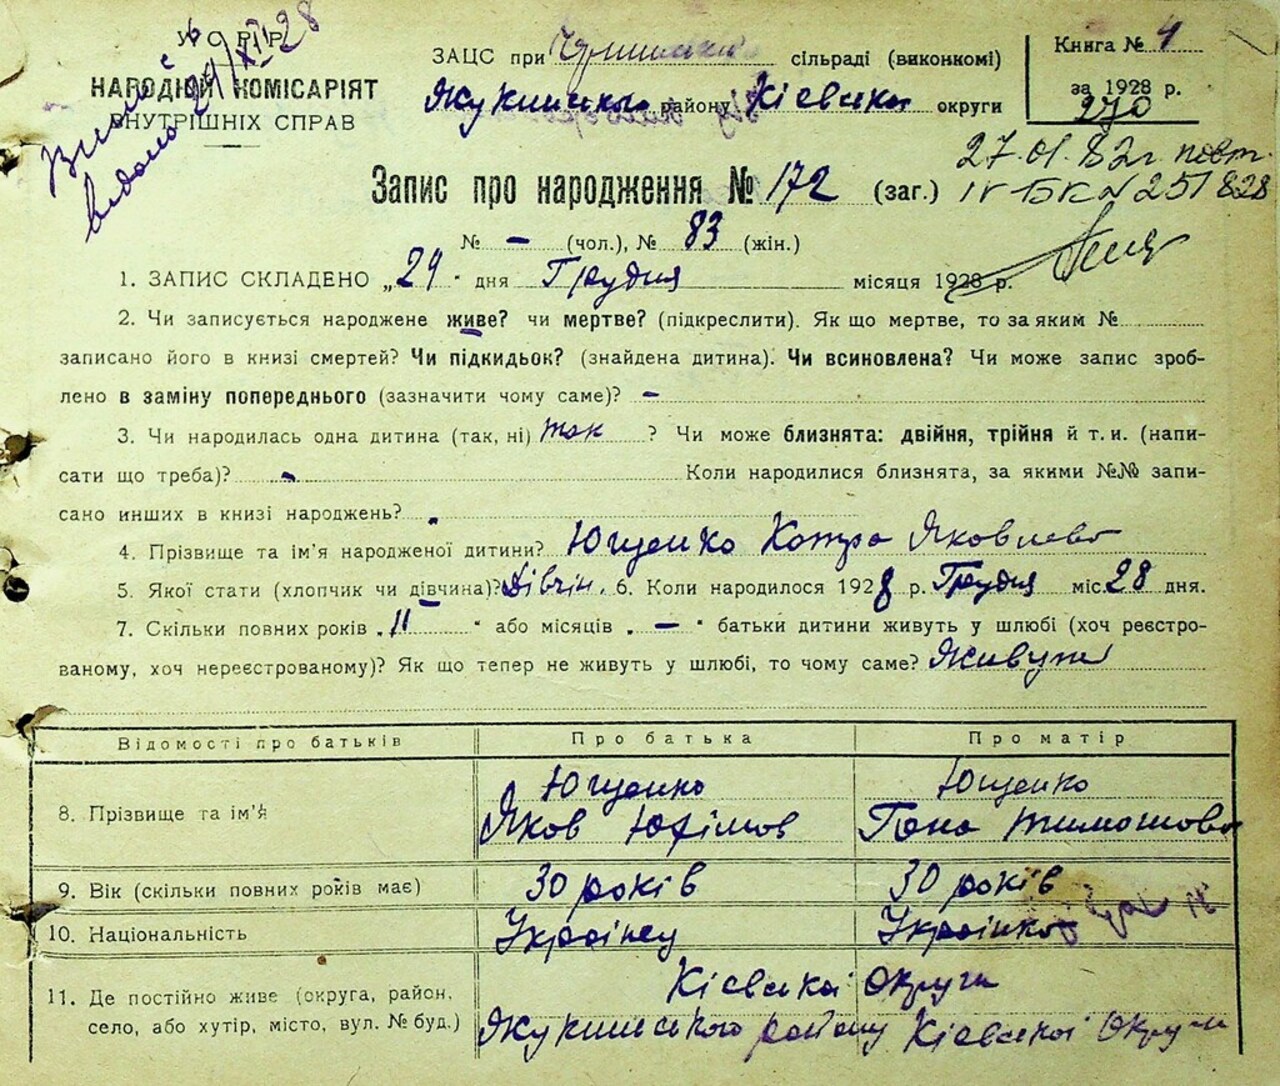 У С Р Р
НАРОДНІЙ КОМІСАРІЯТ
ВНУТРІШНІХ СПРАВ
ЗАЦС при сільраді (виконкомі)
району Кіевської округи
Книга № 4
за 1928 р.
270
27.01.82г повт.
IV БК № 251828
Запис про народження № 172 (заг.)
№ – (чол.), № 83 (жін.)
1. ЗАПИС СКЛАДЕНО „29" дня Грудня місяця 1928 р.
2. Чи записується народжене живе? чи мертве? (підкреслити). Як що мертве, то за яким №
записано його в книзі смертей? Чи підкидьок? (знайдена дитина). Чи всиновлена? Чи може запис зроб-
лено в заміну попереднього (зазначити чому саме)? –
3. Чи народилась одна дитина (так, ні) так ? Чи може близнята: двійня, трійня й т. и. (напи-
сати що треба)? - Коли народилися близнята, за якими №№ запи-
сано инших в книзі народжень?
4. Прізвище та ім'я народженої дитини? Ющенко Катра Яковлева
5. Якої стати (хлопчик чи дівчина)? Дівчін. 6. Коли народилося 1928 р. Грудня міс. 28 дня.
7. Скільки повних років „11" або місяців „–" батьки дитини живуть у шлюбі (хоч реєстро-
ваному, хоч нереєстрованому)? Як що тепер не живуть у шлюбі, то чому саме? Живуть
Відомості про батьків Про батька Про матір
8. Прізвище та ім'я Ющенко Яков Юхімов Ющенко Гана Тимошова
9. Вік (скільки повних років має) 30 років 30 років
10. Національність Українец Українка
11. Де постійно живе (округа, район, Кіевської Округи
село, або хутір, місто, вул. № буд.) району Кіевської Округи